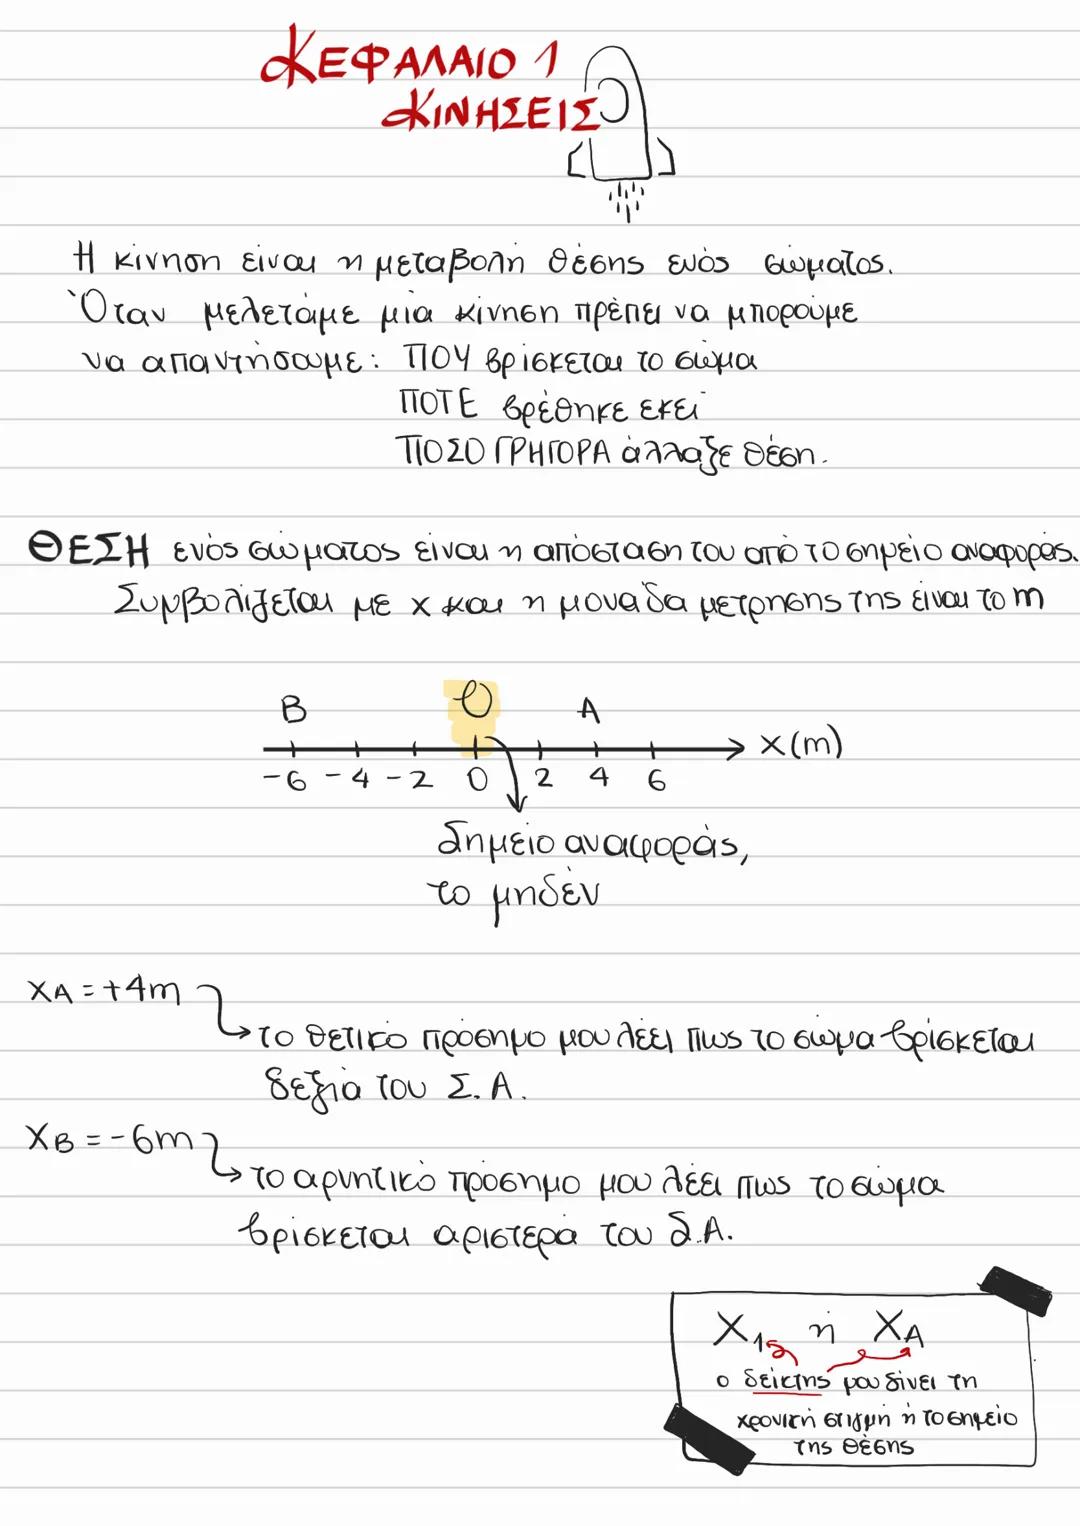 ΚΕΦΑΛΑΙΟ 1
ΚΙΝΗΣΕΙΣ
Η κίνηση είναι η μεταβολή θέσης ενός σώματος.
Όταν μελετάμε μία κίνηση πρέπει να μπορούμε
να απαντήσουμε: ΠΟΥ βρίσκεται το σώμα
ΠΟΤΕ βρέθηκε εκεί
ΠΟΣΟ ΓΡΗΓΟΡΑ άλλαξε θέση.
ΘΕΣΗ ενός σώματος είναι η απόσταση του από το σημείο αναφοράς.
Συμβολίζεται με x και η μονάδα μέτρησης της είναι το m
B Ο A
-6 -4 -2 0 2 4 6 x(m)
Σημείο αναφοράς,
το μηδέν
XA = +4m
το θετικό πρόσημο μου λέει πως το σώμα βρίσκεται
δεξιά του Σ.Α.
XB = -6m
το αρνητικό πρόσημο μου λέει πως το σώμα
βρίσκεται αριστερά του Σ.Α.
X1 ή XA
ο δείκτης μου δίνει τη
χρονική στιγμή ή το σημείο
της θέσης